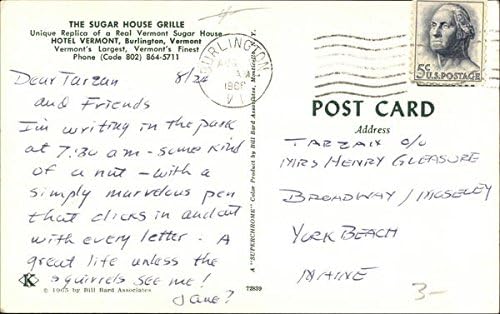 THE SUGAR HOUSE GRILLE
Unique Replica of a Real Vermont Sugar House
HOTEL VERMONT, Burlington, Vermont
Vermont's Largest, Vermont's Finest
Phone (Code 802) 864-5711
Dear Tarzan 8/24
and Friends
I'm writing in the park
at 7:30 am - some kind
of a nut - with a
simply marvelous pen
that clicks in and out
with every letter. A
great life unless the
squirrels see me!
Jane?
K
© 1965 by Bill Bard Associates
72839
A "SUPERCHROME" Color Product by Bill Bard Associates, Monticello,
BURLINGTON
AM
VT
5¢ U.S. POSTAGE
POST CARD
Address
TARZAN c/o
MRS HENRY GLEASURE
BROADWAY / MOSELEY
YORK BEACH
MAINE
3-